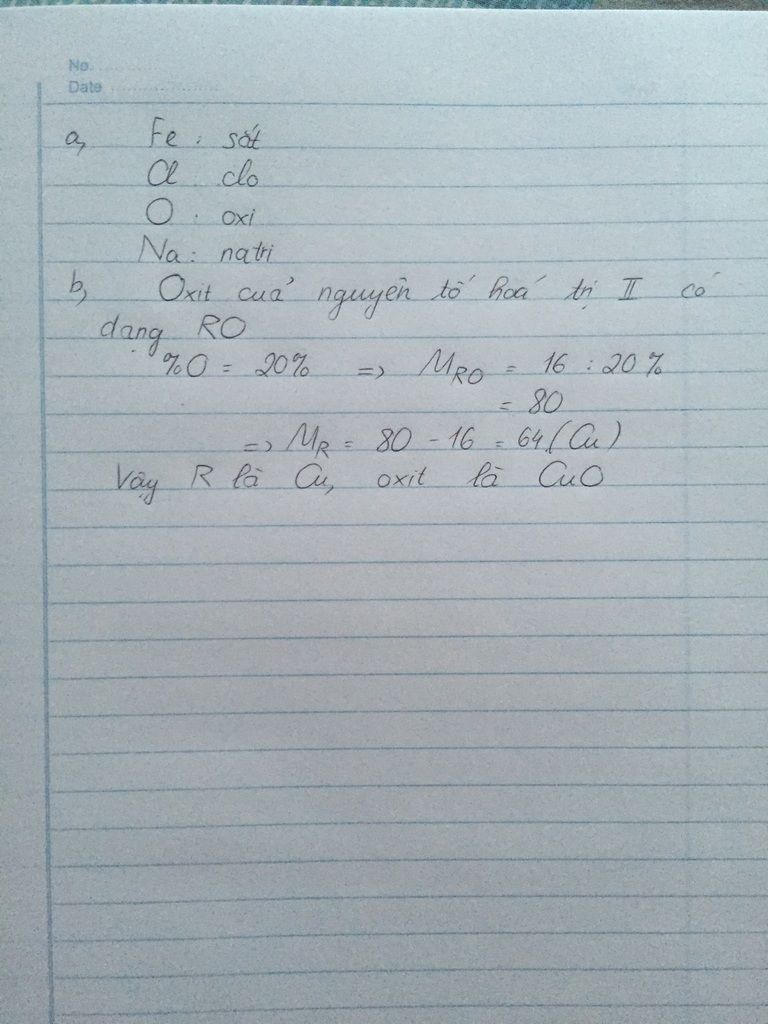 No. ............
Date ....................
a, Fe : sắt
Cl : clo
O : oxi
Na : natri
b, Oxit của nguyên tố hoá trị II có
dạng RO
%O = 20% => MRO = 16 : 20%
= 80
=> MR = 80 - 16 = 64 (Cu)
Vậy R là Cu, oxit là CuO